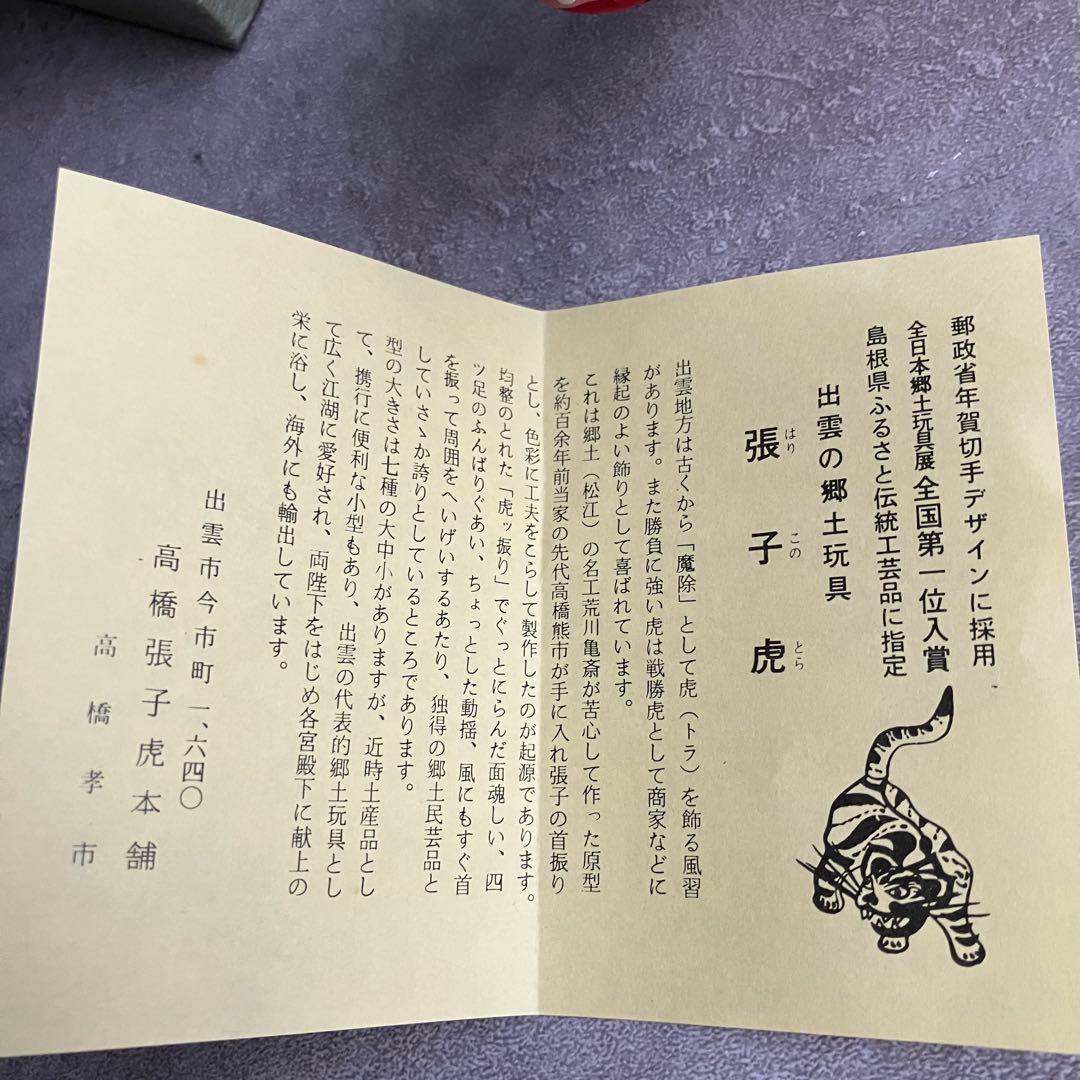 郵政省年賀切手デザインに採用
全日本郷土玩具展 全国第一位入賞
島根県ふるさと伝統工芸品に指定
出雲の郷土玩具
張子虎
はり この とら
出雲地方は古くから「魔除」として虎（トラ）を飾る風習
があります。また勝負に強い虎は戦勝虎として商家などに
縁起のよい飾りとして喜ばれています。
これは郷土（松江）の名工荒川亀斎が苦心して作った原型
を約百余年前当家の先代高橋熊市が手に入れ張子の首振り
とし、色彩に工夫をこらして製作したのが起源であります。
均整のとれた「虎ッ振り」でぐっとにらんだ面魂しい、四
ッ足のふんばりぐあい、ちょっとした動揺、風にもすぐ首
を振って周囲をへいげいするあたり、独得の郷土民芸品と
していさゝか誇りとしているところであります。
型の大きさは七種の大中小がありますが、近時土産品とし
て、携行に便利な小型もあり、出雲の代表的郷土玩具とし
て広く江湖に愛好され、両陛下をはじめ各宮殿下に献上の
栄に浴し、海外にも輸出しています。
出雲市今市町一、六四〇
高橋張子虎本舗
高橋孝市